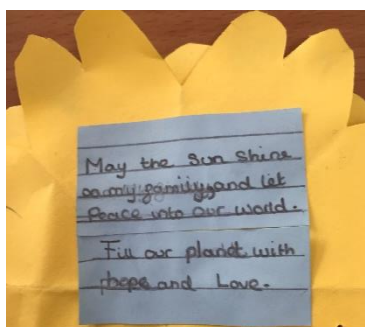 May the Sun Shine
on my family and let
Peace into our world.
Fill our planet with
hope and Love.